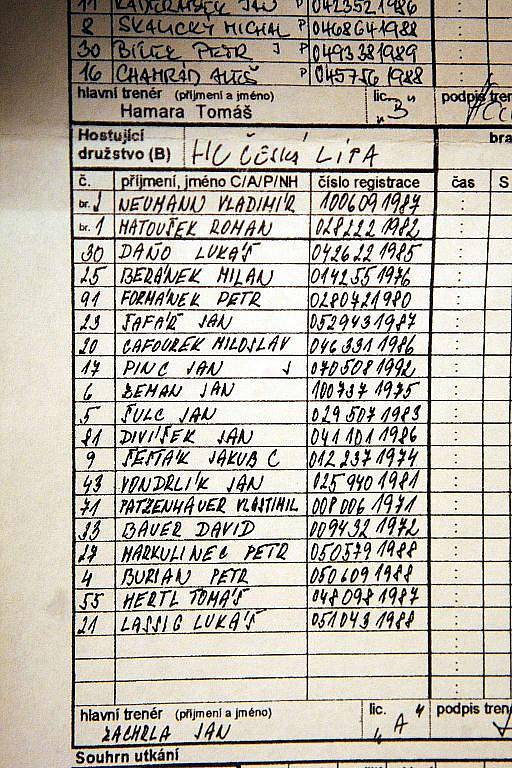 11 KADEŘÁBEK JAN P 0423521986
8 SKALICKÝ MICHAL P 0468641988
30 BÍLEK PETR J P 0493381989
16 CHAMRÁD ALEŠ P 0457561988
hlavní trenér (příjmení a jméno) lic. podpis tren
Hamara Tomáš „B"
Hostující
družstvo (B) HC ČESKÁ LÍPA bra
č. příjmení, jméno C/A/P/NH číslo registrace čas S
br. 2 NEUMANN VLADIMÍR 1006091987 :
br. 1 MATOUŠEK ROMAN 0282221982 :
30 DAŇO LUKÁŠ 0426221985 :
25 BERÁNEK MILAN 0142551976 :
91 FORMÁNEK PETR 0280721980 :
23 ŠAFÁŘ JAN 0529431987 :
20 CAFOUREK MILOSLAV 0463311986 :
17 PINC JAN J 0705081992 :
6 ZEMAN JAN 1007371975 :
5 ŠULC JAN 0295071983 :
81 DIVÍŠEK JAN 0411011986 :
9 ŠESTÁK JAKUB C 0122371974 :
43 VONDRLÍK JAN 0259401981 :
71 PATZENHAUER VLASTIMIL 0080061971 :
33 BAUER DAVID 0094321972 :
27 MARKULINEC PETR 0505791988 :
4 BURIAN PETR 0506091988 :
55 HERTL TOMÁŠ 0480981987 :
21 LASSIG LUKÁŠ 0510431988 :
hlavní trenér (příjmení a jméno) lic. podpis tren
ZACHRLA JAN „A"
Souhrn utkání